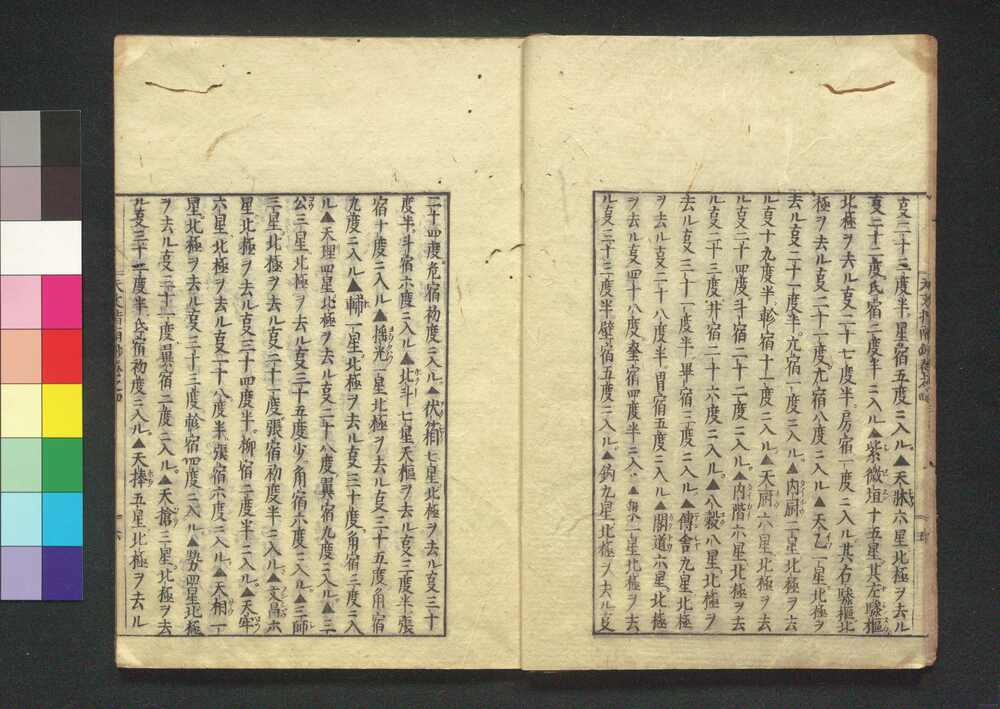 亥三十三度半星宿五度ニ入ル▲天牀六星北極ヲ去ル
亥二十二度氐宿二度半ニ入ル▲紫微垣十五星其左驂樞
北極ヲ去ル亥二十七度半房宿一度ニ入ル其右驂樞北
極ヲ去ル亥二十一度亢宿八度ニ入ル▲天乙一星北極ヲ
去ル亥二十一度半亢宿一度ニ入ル▲内厨二星北極ヲ去
ル亥十九度半軫宿十一度ニ入ル▲天厨六星北極ヲ去
ル亥二十四度斗宿二十二度ニ入ル▲内階六星北極ヲ去
ル亥二十三度井宿二十六度ニ入ル▲八穀八星北極ヲ
去ル亥三十一度半畢宿三度ニ入ル▲傳舎九星北極
ヲ去ル亥二十八度半胃宿五度ニ入ル▲閣道六星北極
ヲ去ル亥四十八度奎宿四度半ニ入
ル亥三十三度半壁宿五度ニ入ル▲鈎九星北極ヲ去ル亥
二十四度危宿初度ニ入ル▲伏 七星北極ヲ去ル亥三十
度半斗宿六度ニ入ル▲北斗七星天樞ヲ去ル亥三度半張
宿十度ニ入ル▲揺光一星北極ヲ去ル亥三十五度角宿
九度ニ入ル▲輔一星北極ヲ去ル亥三十度角宿三度ニ入
ル▲天理四星北極ヲ去ル亥二十八度翼宿九度ニ入ル▲三
公三星北極ヲ去ル亥三十五度少角宿六度ニ入ル▲三師
三星北極ヲ去ル亥二十一度張宿初度半ニ入ル▲文昌六
星北極ヲ去ル亥三十四度半柳宿二度半ニ入ル▲天牢
六星北極ヲ去ル亥二十八度半張宿六度ニ入ル▲天相一
星北極ヲ去ル亥三十三度軫宿四度ニ入ル▲勢四星北極
ヲ去ル亥三十一度翼宿二度ニ入ル▲天槍三星北極ヲ去
ル亥三十二度半氐宿初度ニ入ル▲天棒五星北極ヲ去ル